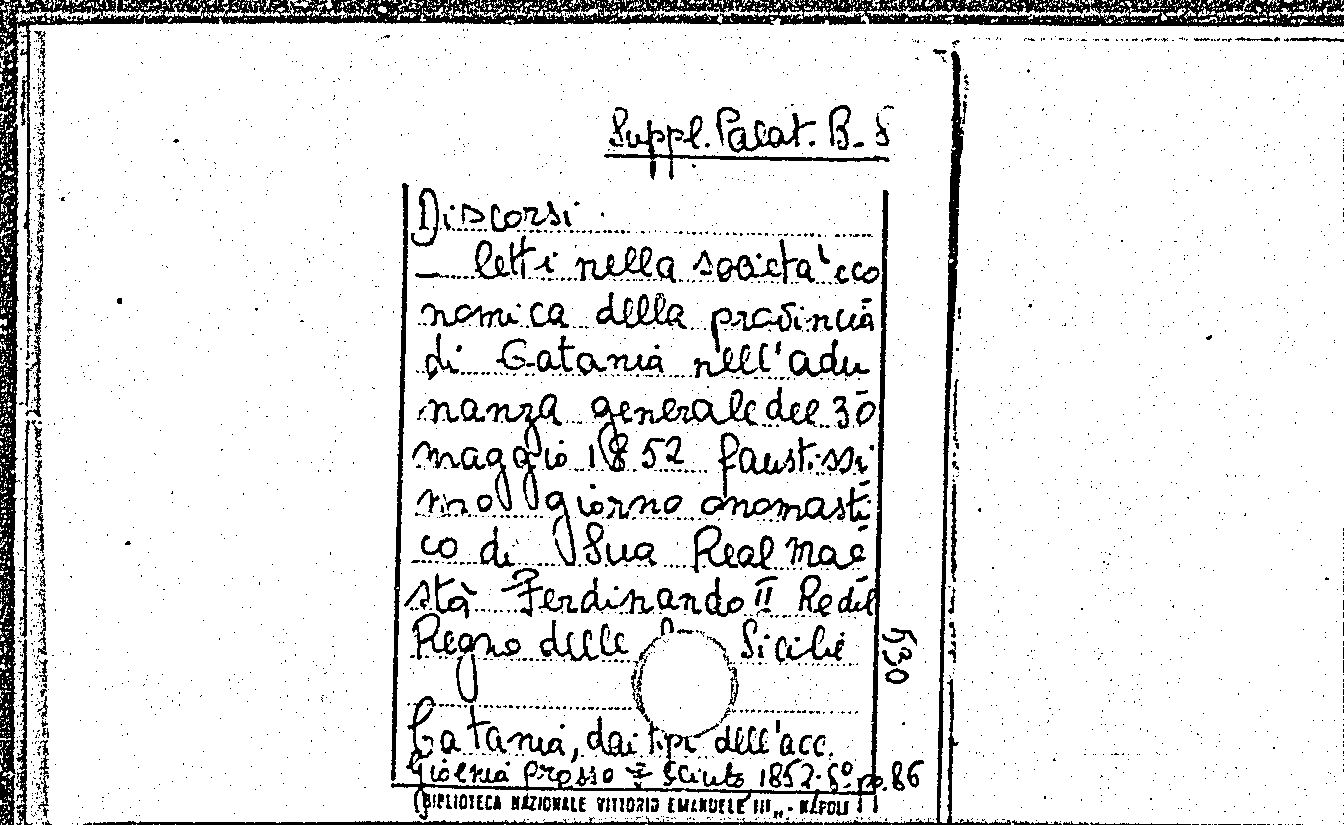 Suppl. Palat. B.
Discorsi
— letti nella società eco
nomica della provincia
di Catania nell'adu
nanza generale del 30
maggio 1852 faustissi
mo giorno onomasti
co di Sua Real Mae
stà Ferdinando II Re del
Regno delle Sicilie
530
Catania, dai tipi dell'acc.
Gioenia presso F. Sciuto, 1852. 8º. pp. 86
(BIBLIOTECA NAZIONALE VITTORIO EMANUELE III„ - NAPOLI